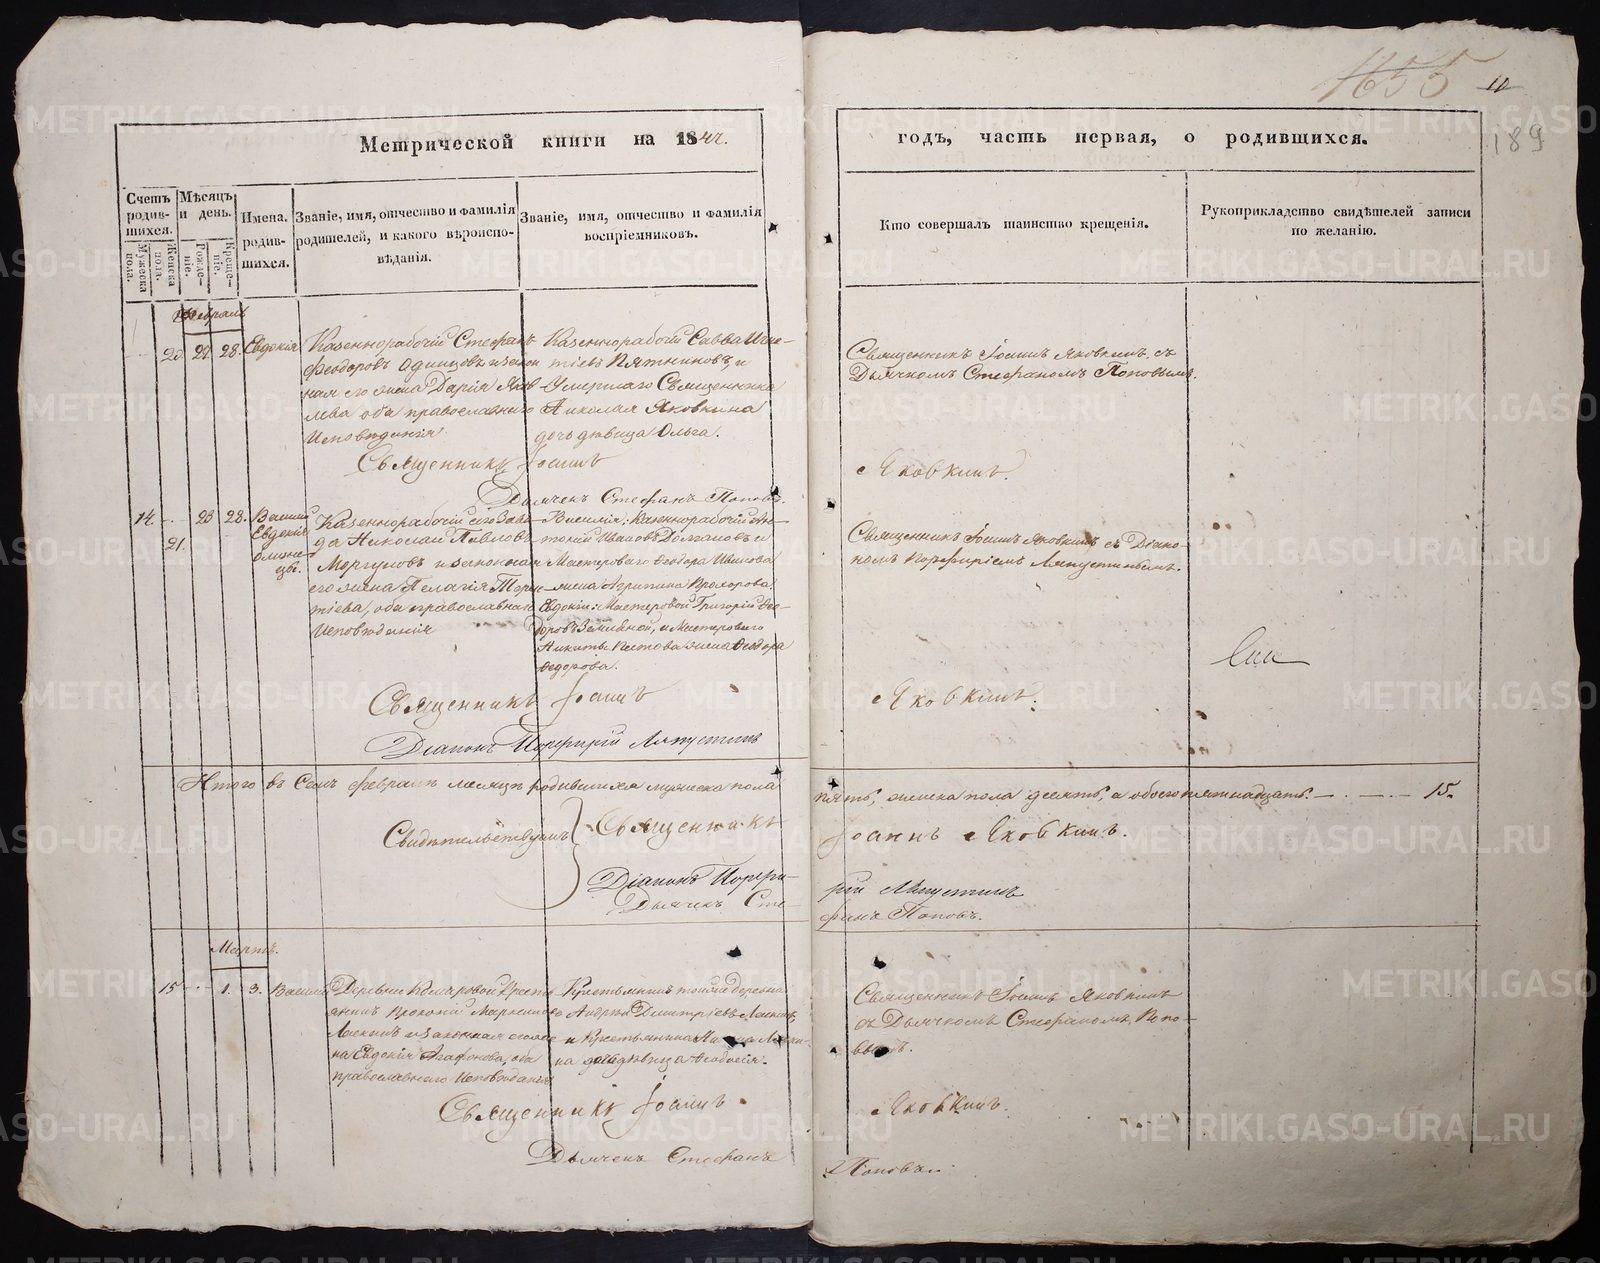 1655
11
189
Метрической книги на 1844.
годъ, часть первая, о родившихся.
Счетъ родив-шихся.
Мужеска пола.
Женска пола.
Мѣсяцъ и день.
Рожде-ніе.
Креще-ніе.
Имена. родив-шихся.
Званіе, имя, отчество и фамилія
родителей, и какого вѣроиспо-
вѣданія.
Званіе, имя, отчество и фамилія
воспріемниковъ.
Кто совершалъ таинство крещенія.
Рукоприкладство свидѣтелей записи
по желанію.
Февраль
20 27 28. Евдокія
Казеннорабочій Стефанъ
Феодоровъ Одинцовъ и закон
ная его жена Дарія Яков
лева оба православнаго
Исповѣданія
Казеннорабочій Савва Игна-
тіевъ Пятниковъ, и
Умершаго Священника
Николая Яковкина
дочь дѣвица Ольга.
Священникъ Іоаннъ Яковкинъ, съ
Дьячкомъ Стефаномъ Поповымъ.
Священникъ Іоаннъ Яковкинъ.
Дьячекъ Стефанъ Поповъ.
14. 21. 23 28. Василій
Евдокія
близне-
цы.
Казеннорабочій сего Заво-
да Николай Павловъ
Моргуновъ и законная
его жена Пелагія Терен-
тіева, оба православнаго
Исповѣданія
Василія: Казеннорабочій Ан-
тоній Ивановъ Долгановъ и
Мастероваго Феодора Иванова
жена Агрипина Прохорова
Евдокіи: Мастеровой Григорій Фео-
доровъ, и Мастероваго
Никиты жена Феодора
Федорова.
Священникъ Іоаннъ Яковкинъ съ Діако-
номъ Порфиріемъ Ляпустинымъ.
Священникъ Іоаннъ Яковкинъ.
Діаконъ Порфирій Ляпустинъ
Итого въ Семъ февралѣ месяцѣ родившихся мужеска пола
пять, женска пола десять, а обоего пятнадцать. — 15.
Свидѣтельствуемъ Священникъ Іоаннъ Яковкинъ.
Діаконъ Порфирій Ляпустинъ
Дьячекъ Стефанъ Поповъ.
Мартъ.
15 1. 3. Василій
Деревни Комаровой Кресть-
янинъ Прокопій
и законная его же-
на Евдокія Агафонова, оба
православнаго Исповѣданія
Крестьянинъ тойже деревни
Андрей Дмитріевъ
и Крестьянина
на дочь дѣвица Феодосія.
Священникъ Іоаннъ Яковкинъ
съ Дьячкомъ Стефаномъ Попо-
вымъ.
Священникъ Іоаннъ Яковкинъ.
Дьячекъ Стефанъ Поповъ.
METRIKI.GASO-URAL.RU